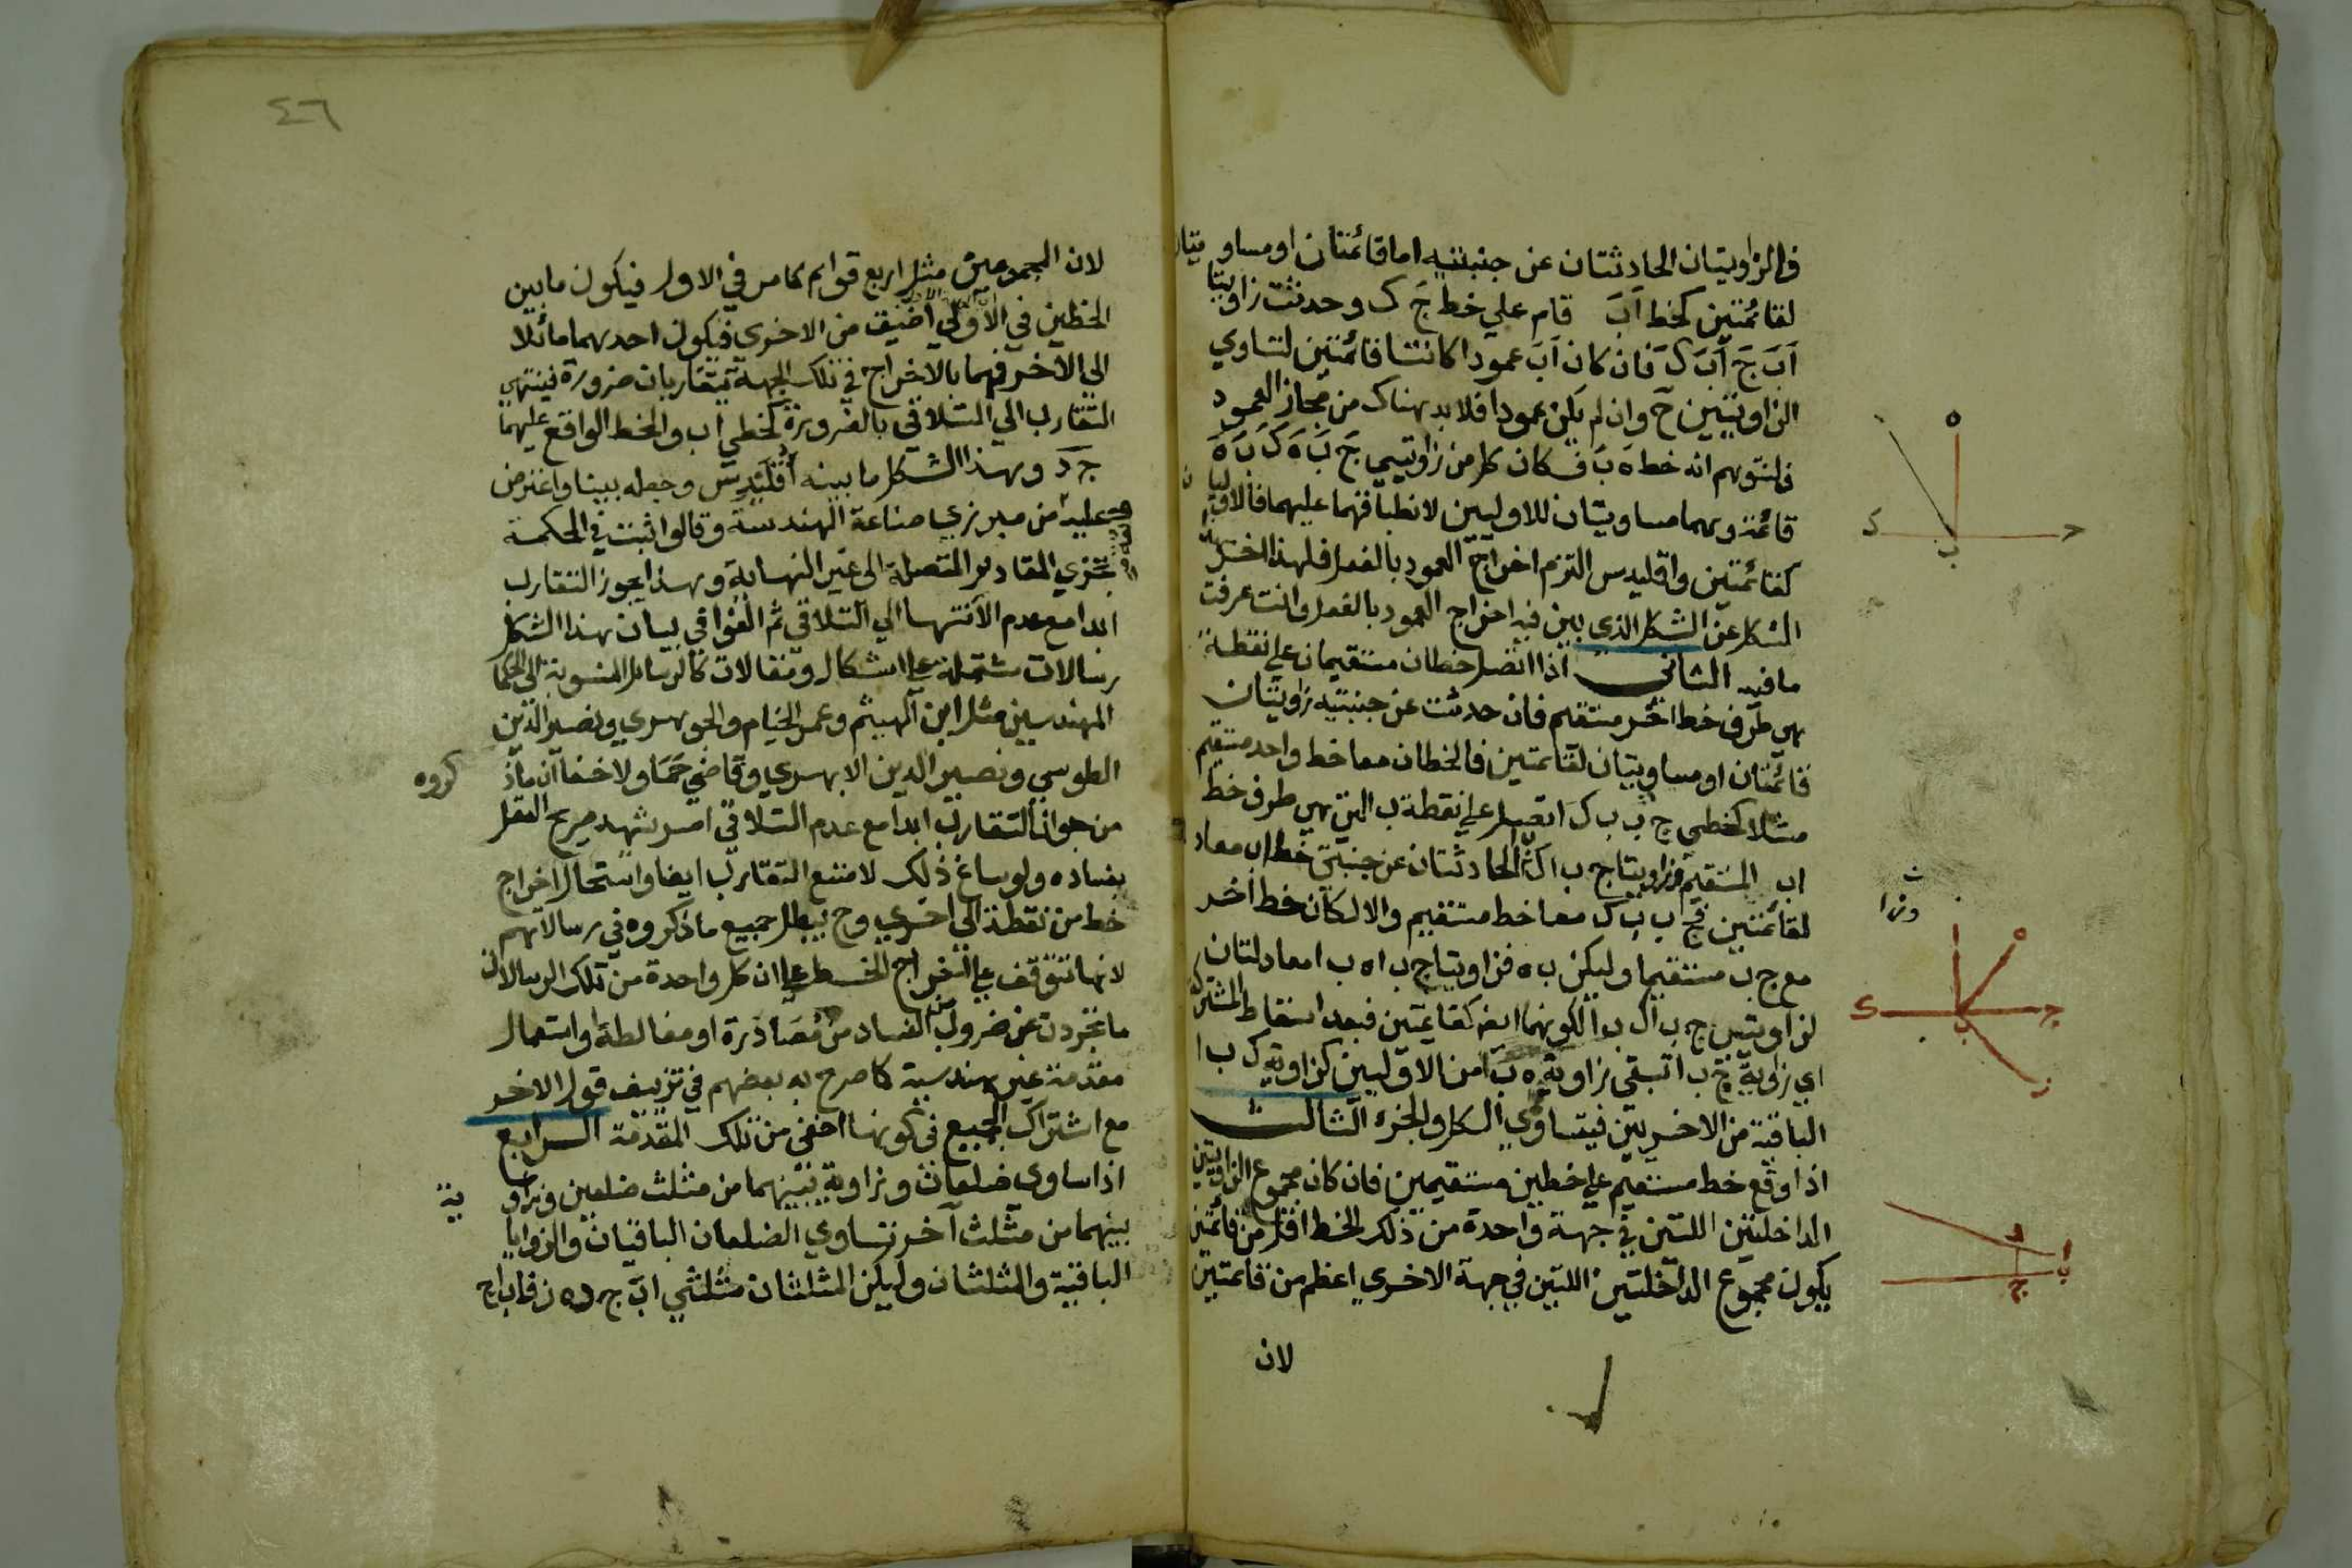 فالزاويتان الحادثتان عن جنبتيه اما قائمتان او مساويتان
لقائمتين كخط اَبَ قام علي خط جَ ك وحدثت زاويتا
اَبَ جَ اَبَ كَ فان كان اَبَ عمودا كانتا قائمتين لتساوي
الزاويتين ح وان لم يكن عمودا فلابد هناك من مجاز العمود
فلنتوهم انه خط هَ بَ فكان كل من زاويتيي جَ بَ هَ كَ بَ هَ
قائمة وهما مساويتان للاوليين لانطباقهما عليهما فالاوليان
كقائمتين واقليدس التزم اخراج العمود بالفعل فلهذا اخر
الشكل عن الشكل الذي بين فيه اخراج العمود بالفعل وانت عرفت
ما فيه الثاني اذا اتصل خطان مستقيمان علي نقطة
هي طرف خط اخر مستقيم فان حدثت عن جنبتيه زاويتان
قائمتان او مساويتان لقائمتين فالخطان معا خط واحد مستقيم
مثلا كخطي ج ب ب ك اتصلا علي نقطة ب التي هي طرف خط
اب المستقيم وزاويتا ج ب ا ك الحادثتان عن جنبتي خط اب معاد
لقائمتين فج ب ب ك معا خط مستقيم والا لكان خط اخر
مع ج ب مستقيما وليكن ب ه فزاويتا ج ب ا ه ب ا معادلتان
لزاويتي ج ب ا ك ب ا لكونهما ايضا كقائمتين فبعد اسقاط المشترك
اي زاوية ج ب ا تبقي زاوية ه ب ا من الاوليين كزاوية ك ب ا
الباقية من الاخريين فيتساوي الكل والجزء الثالث
اذا وقع خط مستقيم علي خطين مستقيمين فان كان مجموع الزاويتين
الداخلتين اللتين في جهة واحدة من ذلك الخط اقل من قائمتين
يكون مجموع الداخلتين اللتين في جهة الاخري اعظم من قائمتين
لان
٤٦
لان المجموعين مثل اربع قوايم كما مر في الاول فيكون ما بين
الخطين في الاولي اضيق من الاخري فيكون احدهما مائلا
الي الاخر فهما بالاخراج في تلك الجهة يتقاربان ضرورة فينتهي
التقارب الي التلاقي بالضرورة كخطي اب والخط الواقع عليهما
ج د وهذا الشكل ما بينه اُقْلَيدِس وجعله بينا واعترض
عليه من مبرزي صناعة الهندسة وقالوا ثبت في الحكمة
تجزي المقادير المتصلة الى غير النهاية وبهذا يجوز التقارب
ابدا مع عدم الانتهاء الي التلاقي ثم الفوا في بيان هذا الشكل
رسالات مشتملة علي اشكال ومقالات كالرسائل المنسوبة الي الحكما
المهندسين مثل ابن الهيثم وعمر الخيام والجوهري ونصير الدين
الطوسي ونصير الدين الابهري وقاضي حَمَا ولا خفا ان ما ذ
كروه
من جواز التقارب ابدا مع عدم التلاقي امر يشهد صريح العقل
بفساده ولو ساغ ذلك لامتنع التقارب ايضا واستحال اخراج
خط من نقطة الي اخري وح يبطل جميع ما ذكروه في رسالاتهم
لانها تتوقف علي اخراج الخط علي ان كل واحدة من تلك الرسالات
ما تجردت عن ضروب من الفساد من مُصَادَرة او مغالطة او استعمال
مقدمة غير هندسية كما صرح به بعضهم في تزييف قول الاخر
مع اشتراك الجميع في كونها اخفى من تلك المقدمة الرابع
اذا ساوى ضلعان وزاوية بينهما من مثلث ضلعين وزاو
ية
بينهما من مثلث آخر تساوي الضلعان الباقيان والزوايا
الباقية والمثلثان وليكن المثلثان مثلثي اب ج د ه ز فاب اج